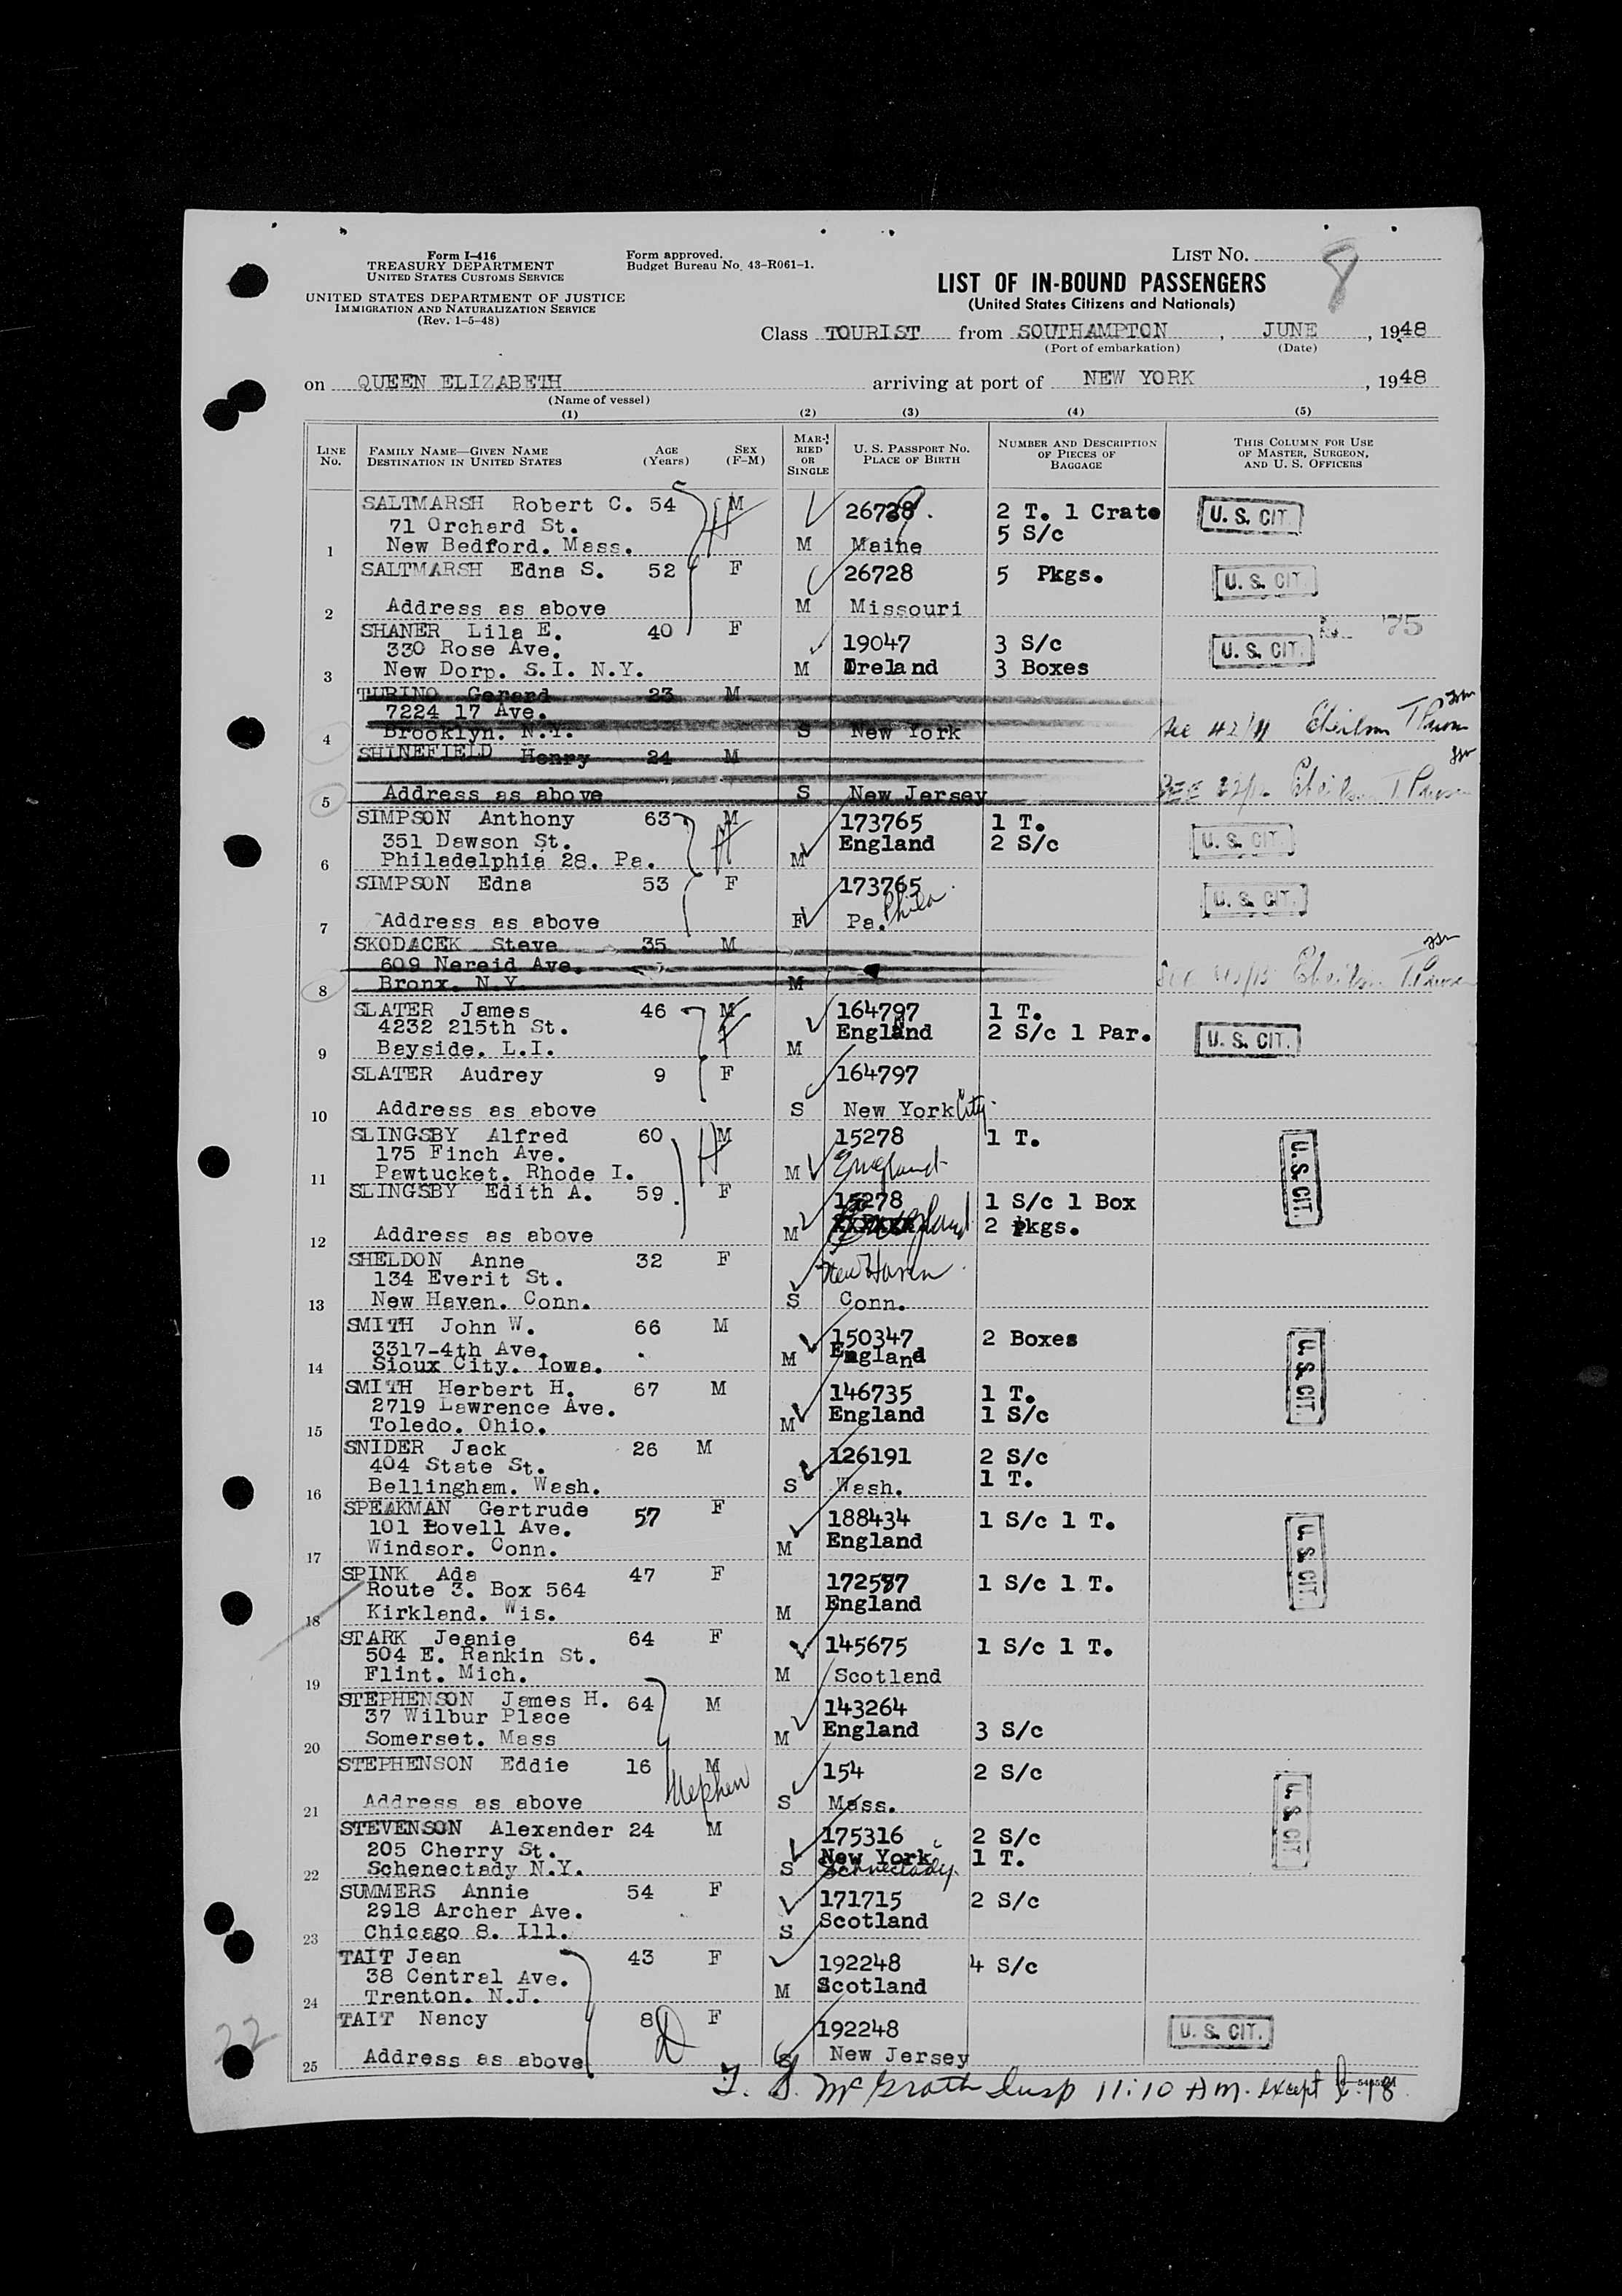 Form I-416
TREASURY DEPARTMENT
UNITED STATES CUSTOMS SERVICE
UNITED STATES DEPARTMENT OF JUSTICE
IMMIGRATION AND NATURALIZATION SERVICE
(Rev. 1-5-48)
Form approved.
Budget Bureau No. 43-R061-1.
LIST NO. 8
LIST OF IN-BOUND PASSENGERS
(United States Citizens and Nationals)
Class TOURIST from SOUTHAMPTON, JUNE, 1948
(Port of embarkation) (Date)
on QUEEN ELIZABETH arriving at port of NEW YORK, 1948
(Name of vessel)
(1) (2) (3) (4) (5)
LINE No. FAMILY NAME—GIVEN NAME DESTINATION IN UNITED STATES AGE (Years) SEX (F-M) MARRIED OR SINGLE U. S. PASSPORT NO. PLACE OF BIRTH NUMBER AND DESCRIPTION OF PIECES OF BAGGAGE THIS COLUMN FOR USE OF MASTER, SURGEON, AND U. S. OFFICERS
SALTMARSH Robert C. 54 M 26728 2 T. 1 Crate U. S. CIT.
71 Orchard St. 5 S/c
1 New Bedford. Mass. M Maine
SALTMARSH Edna S. 52 F 26728 5 Pkgs. U. S. CIT.
2 Address as above M Missouri
SHANER Lila E. 40 F 19047 3 S/c U. S. CIT. 75
330 Rose Ave.
3 New Dorp. S.I. N.Y. M Ireland 3 Boxes
TURINO Gerard 23 M
7224 17 Ave.
4 Brooklyn. N.Y. S New York See 42/11
SHINEFIELD Henry 24 M
5 Address as above S New Jersey SEE
SIMPSON Anthony 63 M 173765 1 T. U. S. CIT.
351 Dawson St. England 2 S/c
6 Philadelphia 28. Pa. M
SIMPSON Edna 53 F 173765 U. S. CIT.
7 Address as above F Pa. Phila
SKODACEK Steve 35 M
609 Nereid Ave.
8 Bronx. N.Y. M
SLATER James 46 M 164797 1 T.
4232 215th St. England 2 S/c 1 Par. U. S. CIT.
9 Bayside. L.I. M
SLATER Audrey 9 F 164797
10 Address as above S New York City
SLINGSBY Alfred 60 M 15278 1 T. U. S. CIT.
175 Finch Ave.
11 Pawtucket. Rhode I. M England
SLINGSBY Edith A. 59 F 15278 1 S/c 1 Box
12 Address as above M England 2 pkgs.
SHELDON Anne 32 F New Haven
134 Everit St.
13 New Haven. Conn. S Conn.
SMITH John W. 66 M 150347 2 Boxes U. S. CIT.
3317-4th Ave. England
14 Sioux City. Iowa. M
SMITH Herbert H. 67 M 146735 1 T.
2719 Lawrence Ave. England 1 S/c
15 Toledo. Ohio. M
SNIDER Jack 26 M 126191 2 S/c
404 State St. 1 T.
16 Bellingham. Wash. S Wash.
SPEAKMAN Gertrude 57 F 188434 1 S/c 1 T. U. S. CIT.
101 Lovell Ave. England
17 Windsor. Conn. M
SPINK Ada 47 F 172587 1 S/c 1 T.
Route 3. Box 564 England
18 Kirkland. Wis. M
STARK Jeanie 64 F 145675 1 S/c 1 T.
504 E. Rankin St.
19 Flint. Mich. M Scotland
STEPHENSON James H. 64 M 143264
37 Wilbur Place England 3 S/c
20 Somerset. Mass M
STEPHENSON Eddie 16 M 154 2 S/c U. S. CIT.
Nephew
21 Address as above S Mass.
STEVENSON Alexander 24 M 175316 2 S/c
205 Cherry St. New York 1 T.
22 Schenectady N.Y. S Schnectady
SUMMERS Annie 54 F 171715 2 S/c
2918 Archer Ave. Scotland
23 Chicago 8. Ill. S
TAIT Jean 43 F 192248 4 S/c
38 Central Ave. Scotland
24 Trenton. N.J. M
TAIT Nancy 8 D F 192248 U. S. CIT.
22
25 Address as above S New Jersey
McGrath Insp 11:10 AM. except l. 18